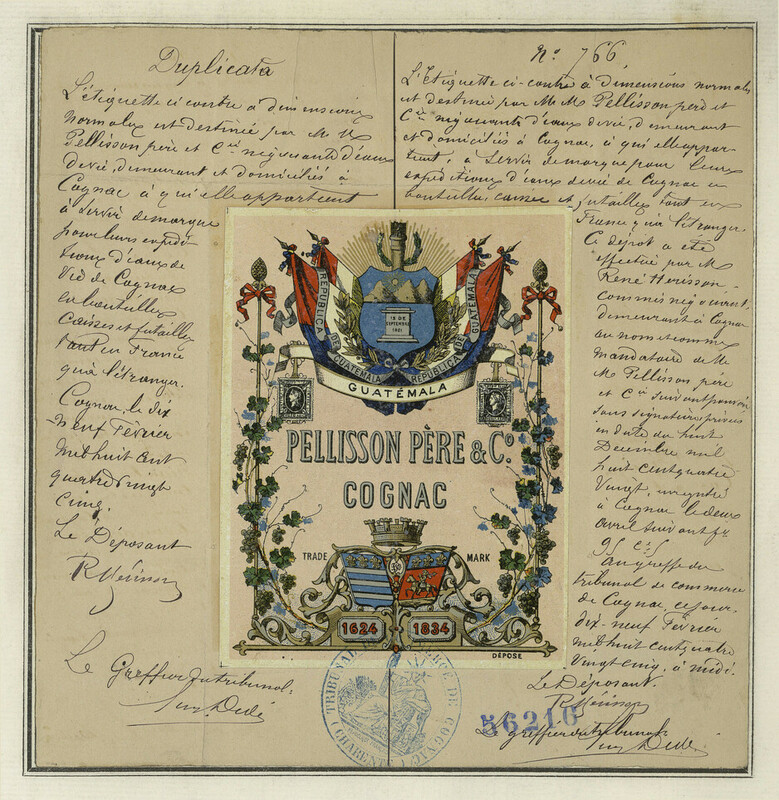 Duplicata
L'étiquette ci contre a dimensions
normales est destinée par M. M
Pellisson père et Cie négociants d'eaux
devie, demeurant et domiciliés à
Cognac à qui elle appartient
à servir demarque
pour leurs expédi
tions d'eaux de
Vie de Cognac
en bouteilles
caisses et futailles
tant en France
qu'à l'étranger.
Cognac, le dix
neuf Février
mil huit cent
quatre vingt
cinq.
Le Déposant
R Hérisson
Le Greffier du tribunal:
Dédé
No 766
L'Etiquette ci-contre à dimensions normales
est destinée par M. M. Pellisson père et
Cie négociants d'eaux devie, demeurant
et domiciliés à Cognac, à qui elle appar-
tient, à servir demarque pour leurs
expéditions d'eaux devie de Cognac en
bouteilles, caisses et futailles tant en
France qu'à l'étranger.
Ce dépôt a été
effectué par M
René Hérisson
commis négociant
demeurant à Cognac
au nom et comme
mandataire de M.
M. Pellisson père
et Cie suivant pouvoir
sous signatures privées
en date du huit
Décembre mil
huit cent quatre
Vingt, enregistré
à Cognac le deux
avril suivant fo
95 cs 5
au greffe du
tribunal de commerce
de Cognac, ce jour.
dix-neuf Février
mil huit cent quatre
Vingt cinq, à midi.
Le Déposant.
R Hérisson
Le greffier du tribunal:
Dédé
56216
REPUBLICA DE GUATEMALA
REPUBLICA DE GUATEMALA
15 DE
SEPTEMBRE
1821
GUATÉMALA
PELLISSON PÈRE & Co.
COGNAC
TRADE MARK
1624 1834
DÉPOSÉ
TRIBUNAL DE COMMERCE DE COGNAC
CHARENTE